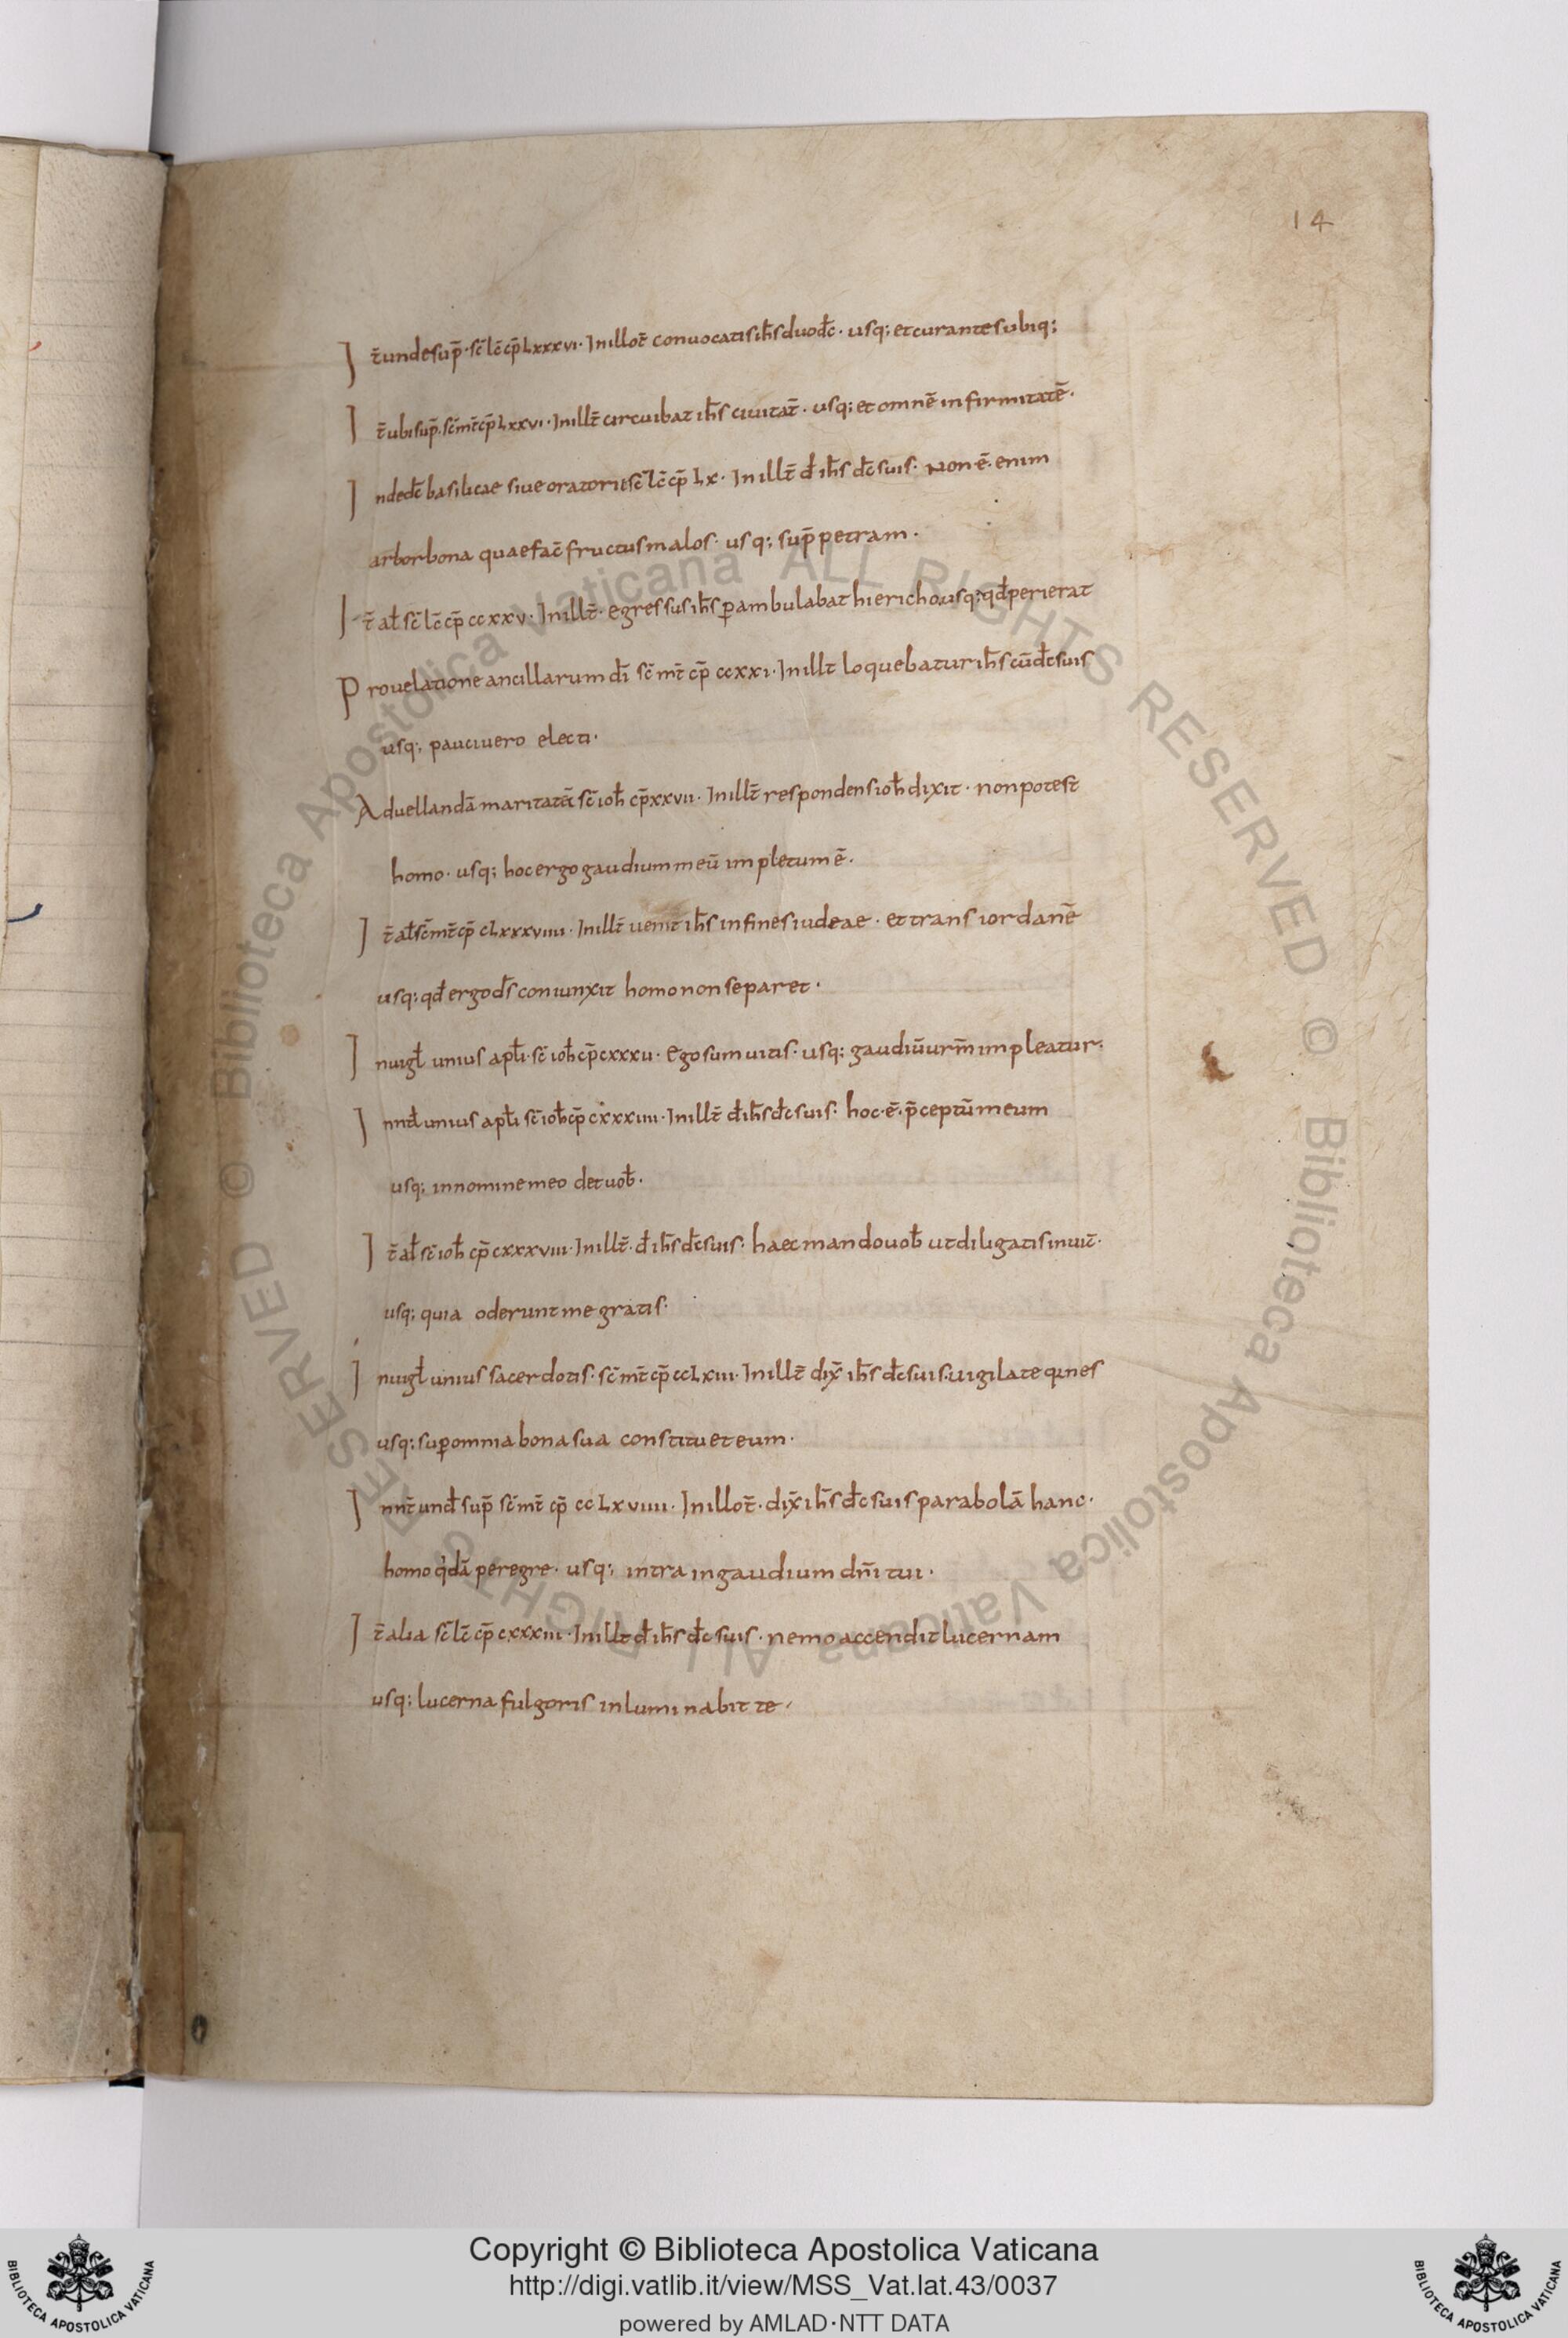 14
It̄ unde sup̄· sc̄ lc̄ cp̄ Lxxxvi· In illo t̄ convocatis ih̄s duod̄c· usq; et curantes ubiq;
It̄ ubi sup̄· sc̄ mt̄ cp̄ Lxxvi· In ill t̄ circuibat ih̄s civitat̄· usq; et omnē infirmitatē·
In dedc̄ basilicae sive oratorii sc̄ lc̄ cp̄ Lx· In ill t̄ d̄ ih̄s dc̄ suis· Non ē· enim
arbor bona quae fac̄ fructus malos· usq; sup̄ petram·
It̄ al̄ sc̄ lc̄ cp̄ ccxxv· In ill t̄· egressus ih̄s perambulabat hiericho usq; qd̄ perierat
Pro velatione ancillarum dī sc̄ mt̄ cp̄ ccxxi· In ill t loquebatur ih̄s cū dc̄ suis
usq; pauci vero electi·
Ad vellandā maritatā sc̄ ioh̄ cp̄ xxvii· In ill t̄ respondens ioh̄ dixit· non potest
homo· usq; hoc ergo gaudium meū impletum ē·
It̄ al̄ sc̄ mt̄ cp̄ cLxxxviiii· In ill t̄ uenit ih̄s in fines iudeae· et trans iordanē
usq; qd̄ ergo d̄s coniunxit homo non separet·
In uigl̄ unius apl̄i· sc̄ ioh̄ cp̄ cxxxu· Ego sum uitis· usq; gaudiū urm̄ impleatur·
In nt̄ unius apl̄i sc̄ ioh̄ cp̄ cxxxiiii· In ill t̄ d̄ ih̄s dc̄ suis· hoc· ē· p̄ceptū meum
usq; in nomine meo det uob̄·
It̄ al̄ sc̄ ioh̄ cp̄ cxxxviii· In ill t̄· d̄ ih̄s dc̄ suis· haec mando uob̄ ut diligatis inuic̄·
usq; quia oderunt me gratis·
In uigl̄ unius sacerdotis· sc̄ mt̄ cp̄ ccLxiii· In ill t̄ dix̄ ih̄s dc̄ suis· uigilate q̄ nes
usq; super omnia bona sua constituet eum·
In nt̄ und̄ sup̄ sc̄ mt̄ cp̄ ccLxviiii· In illo t̄· dix̄ ih̄s dc̄ suis parabolā hanc·
homo q̄dā peregre· usq; intra in gaudium dn̄i tui·
It̄ alia sc̄ lc̄ cp̄ cxxxiii· In ill t d̄ ih̄s dc̄ suis· nemo accendit lucernam
usq; lucerna fulgoris inluminabit te·
© Biblioteca Apostolica Vaticana ALL RIGHTS RESERVED © Biblioteca Apostolica Vaticana ALL RIGHTS RESERVED
Copyright © Biblioteca Apostolica Vaticana
http://digi.vatlib.it/view/MSS_Vat.lat.43/0037
powered by AMLAD·NTT DATA
BIBLIOTECA APOSTOLICA VATICANA
BIBLIOTECA APOSTOLICA VATICANA